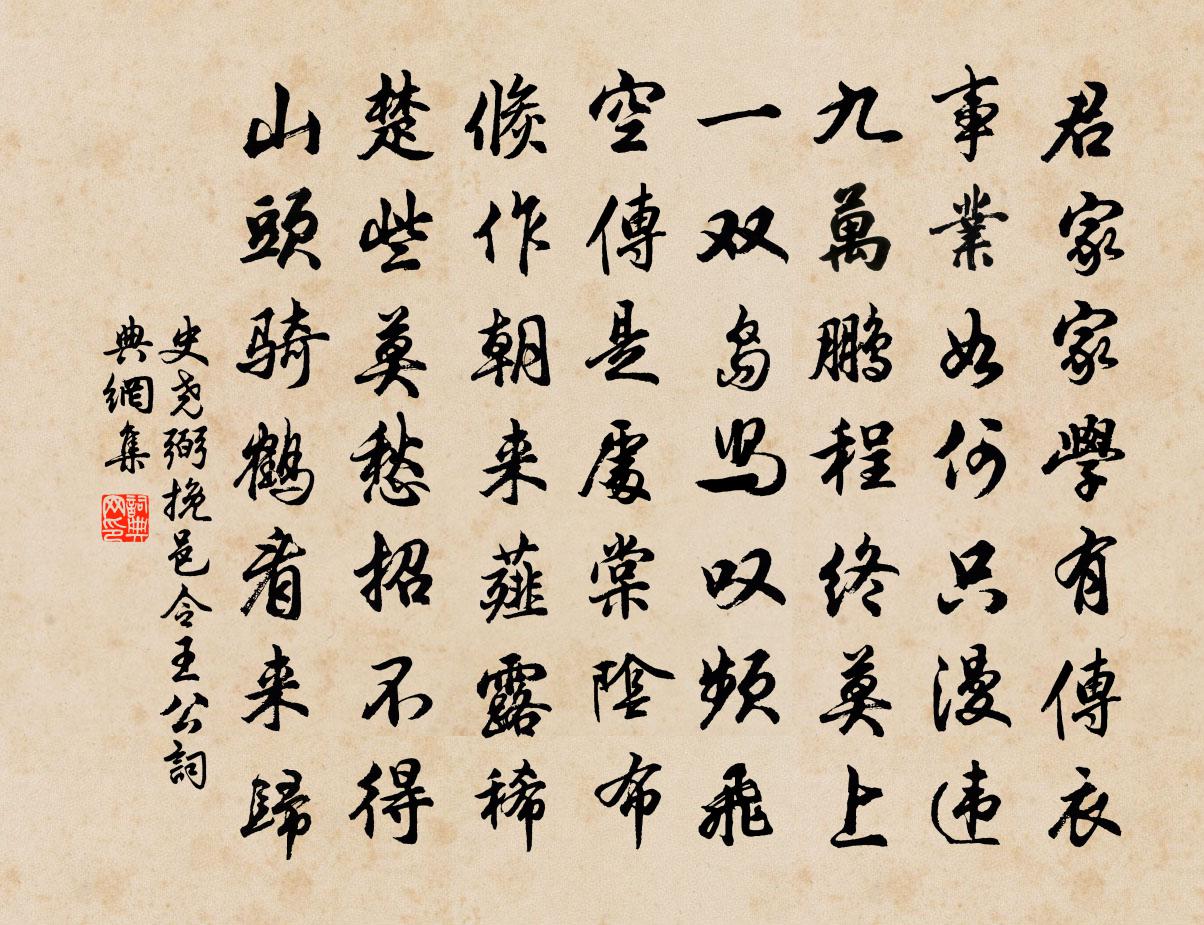 君家家學有傳衣
事業如何只漫違
九萬鵬程終莫上
一双島舃叹頻飛
空傳是處棠陰布
倏作朝来薤露稀
楚些莫愁招不得
山頭騎鶴看来歸
史堯弼挽邑令王公詞
典網集
詞典网印